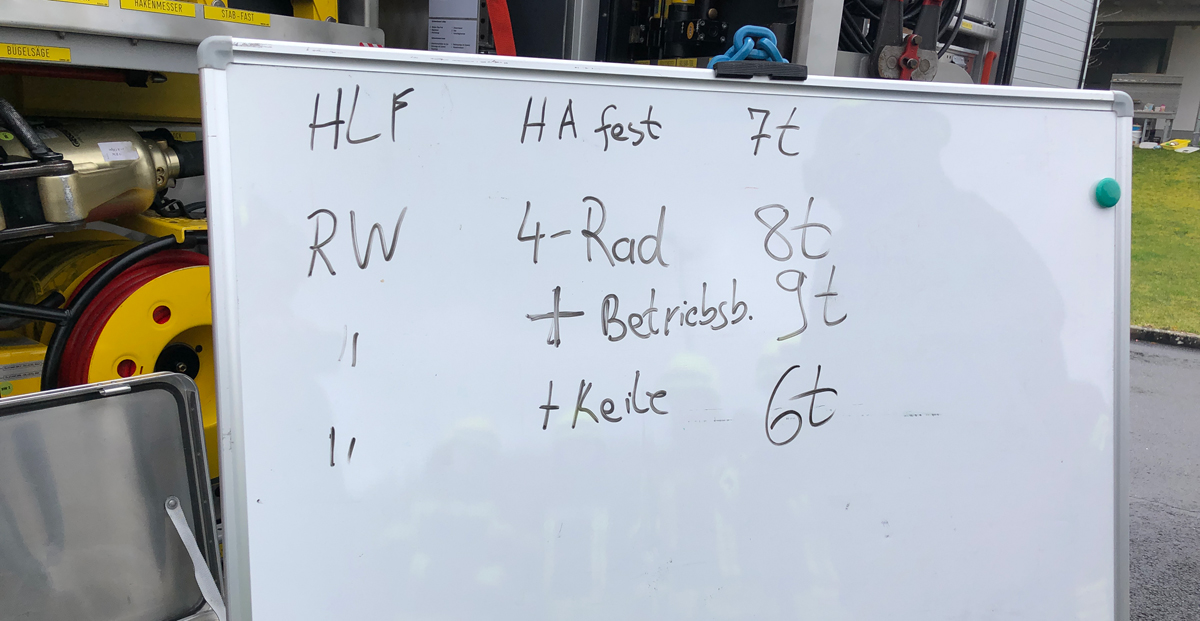 HAKENMESSER
STAB-FAST
BÜGELSÄGE
HLF HA fest 7t
RW 4-Rad 8t
" + Betriebsb. 9t
" + Keile 6t